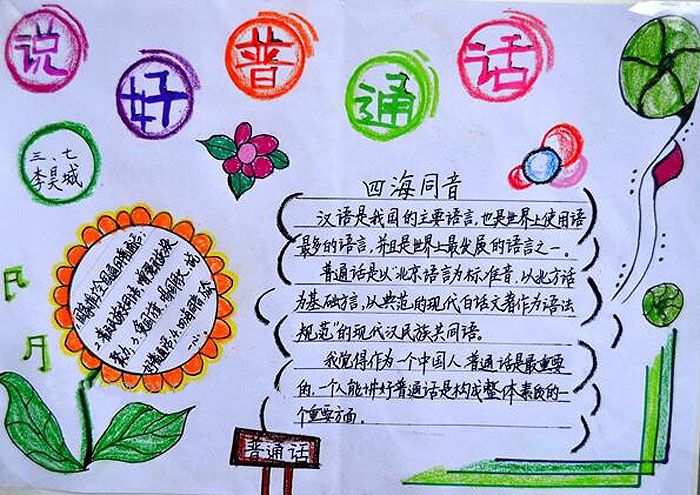 说好普通话
三、七
李昊城
四海同音
汉语是我国的主要语言,也是世界上使用语
最多的语言,并且是世界上最发展的语言之一。
普通话是以"北京语言为标准音,以北方话
为基础方言,以典范的现代白话文著作为语法
规范"的现代汉民族共同语。
我觉得作为一个中国人普通话是最重要
的,一个人能讲好普通话是构成整体素质的一
个重要方面。
普通话